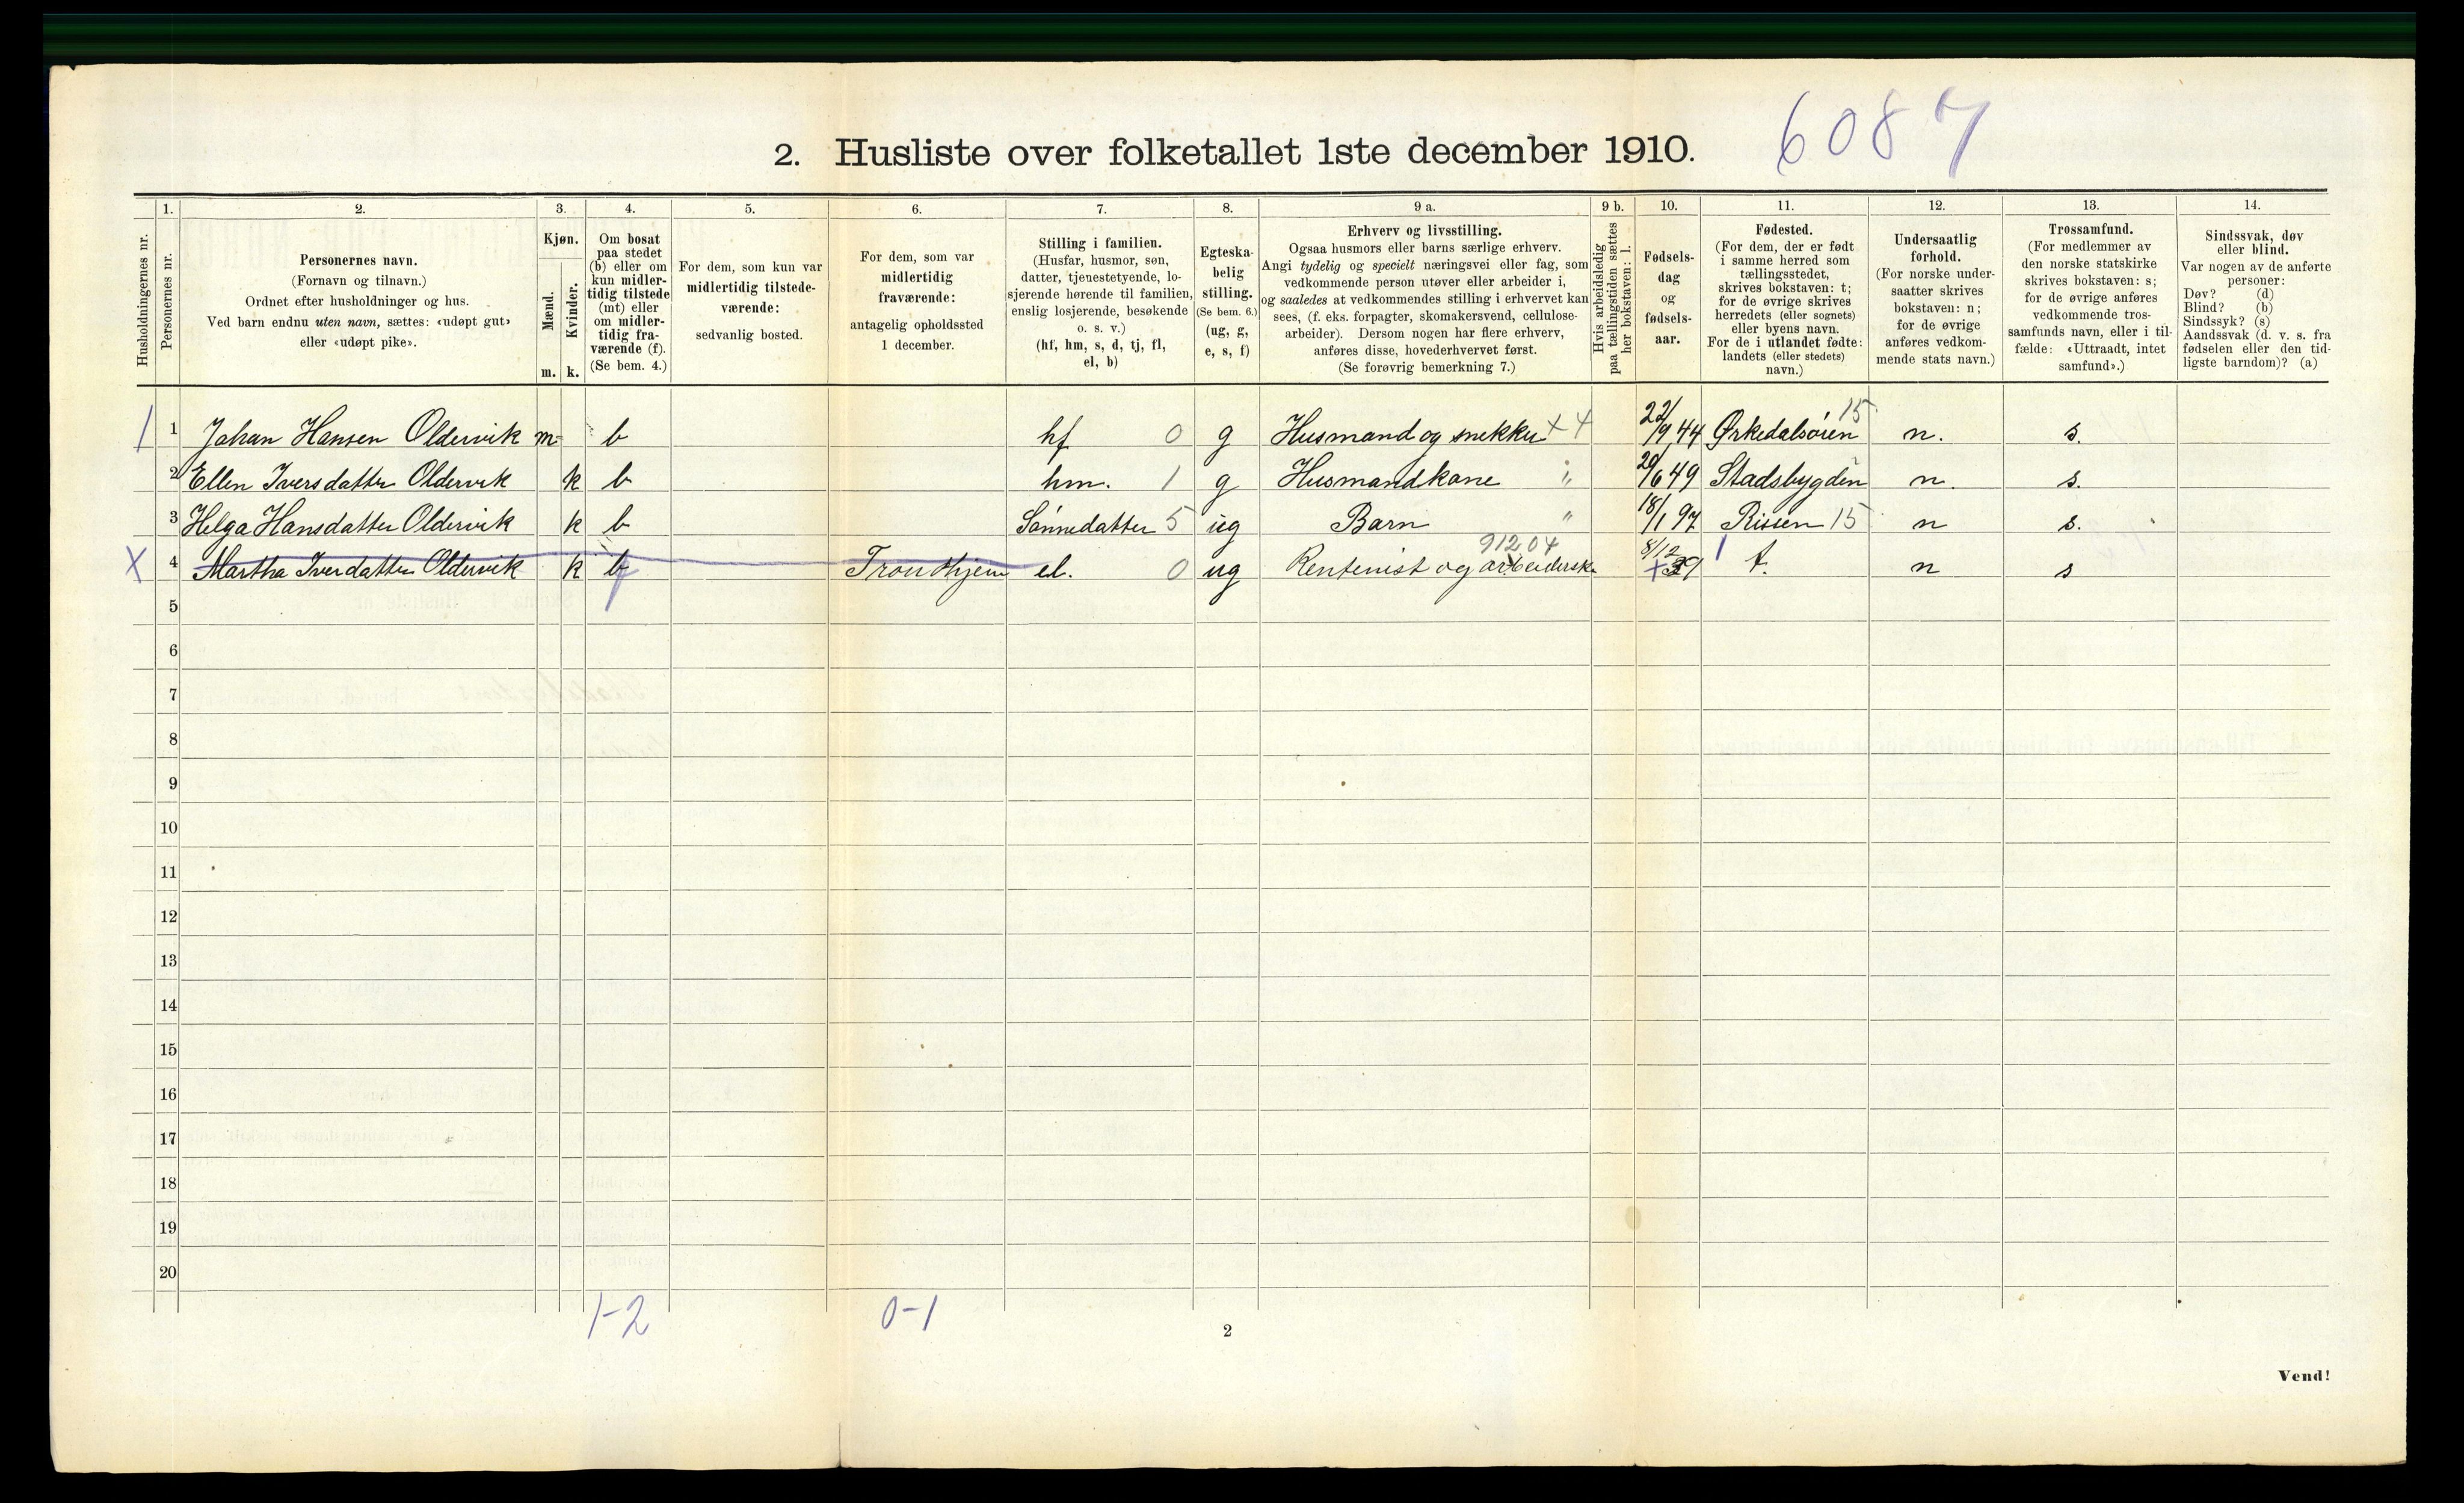 2. Husliste over folketallet 1ste december 1910. 6087
1. 2. 3. 4. 5. 6. 7. 8. 9 a. 9 b. 10. 11. 12. 13. 14.
Husholdningernes nr.
Personernes nr.
Personernes navn.
(Fornavn og tilnavn.)
Ordnet efter husholdninger og hus.
Ved barn endnu uten navn, sættes: «udøpt gut»
eller «udøpt pike».
Kjøn.
Mænd.
Kvinder.
m. k.
Om bosat
paa stedet
(b) eller om
kun midler-
tidig tilstede
(mt) eller
om midler-
tidig fra-
værende (f).
(Se bem. 4.)
For dem, som kun var
midlertidig tilstede-
værende:
sedvanlig bosted.
For dem, som var
midlertidig
fraværende:
antagelig opholdssted
1 december.
Stilling i familien.
(Husfar, husmor, søn,
datter, tjenestetyende, lo-
sjerende hørende til familien,
enslig losjerende, besøkende
o. s. v.)
(hf, hm, s, d, tj, fl,
el, b)
Egteska-
belig
stilling.
(Se bem. 6.)
(ug, g,
e, s, f)
Erhverv og livsstilling.
Ogsaa husmors eller barns særlige erhverv.
Angi tydelig og specielt næringsvei eller fag, som
vedkommende person utøver eller arbeider i,
og saaledes at vedkommendes stilling i erhvervet kan
sees, (f. eks. forpagter, skomakersvend, cellulose-
arbeider). Dersom nogen har flere erhverv,
anføres disse, hovederhvervet først.
(Se forøvrig bemerkning 7.)
Hvis arbeidsledig
paa tællingstiden sættes
her bokstaven: l.
Fødsels-
dag
og
fødsels-
aar.
Fødested.
(For dem, der er født
i samme herred som
tællingsstedet,
skrives bokstaven: t;
for de øvrige skrives
herredets (eller sognets)
eller byens navn.
For de i utlandet fødte:
landets (eller stedets)
navn.)
Undersaatlig
forhold.
(For norske under-
saatter skrives
bokstaven: n;
for de øvrige
anføres vedkom-
mende stats navn.)
Trossamfund.
(For medlemmer av
den norske statskirke
skrives bokstaven: s;
for de øvrige anføres
vedkommende tros-
samfunds navn, eller i til-
fælde: «Uttraadt, intet
samfund».)
Sindssvak, døv
eller blind.
Var nogen av de anførte
personer:
Døv? (d)
Blind? (b)
Sindssyk? (s)
Aandssvak (d. v. s. fra
fødselen eller den tid-
ligste barndom)? (a)
1 1 Johan Hansen Oldervik m b hf 0 g Husmand og snekker x 4 22/9 44 Ørkedalsøien 15 n. s.
2 Ellen Iversdatter Oldervik k b hm. 1 g Husmandkone " 20/6 49 Stadsbygden n. s.
3 Helga Hansdatter Oldervik k b Sønnedatter 5 ug Barn " 18/1 97 Rissen 15 n s.
91204
X 4 Martha Iverdatter Oldervik k b f Trondhjem el. 0 ug Rentenist og arbeidersk. 8/12 + 39 1 t. n s
5
6
7
8
9
10
11
12
13
14
15
16
17
18
19
20
1-2 0-1
2
Vend!